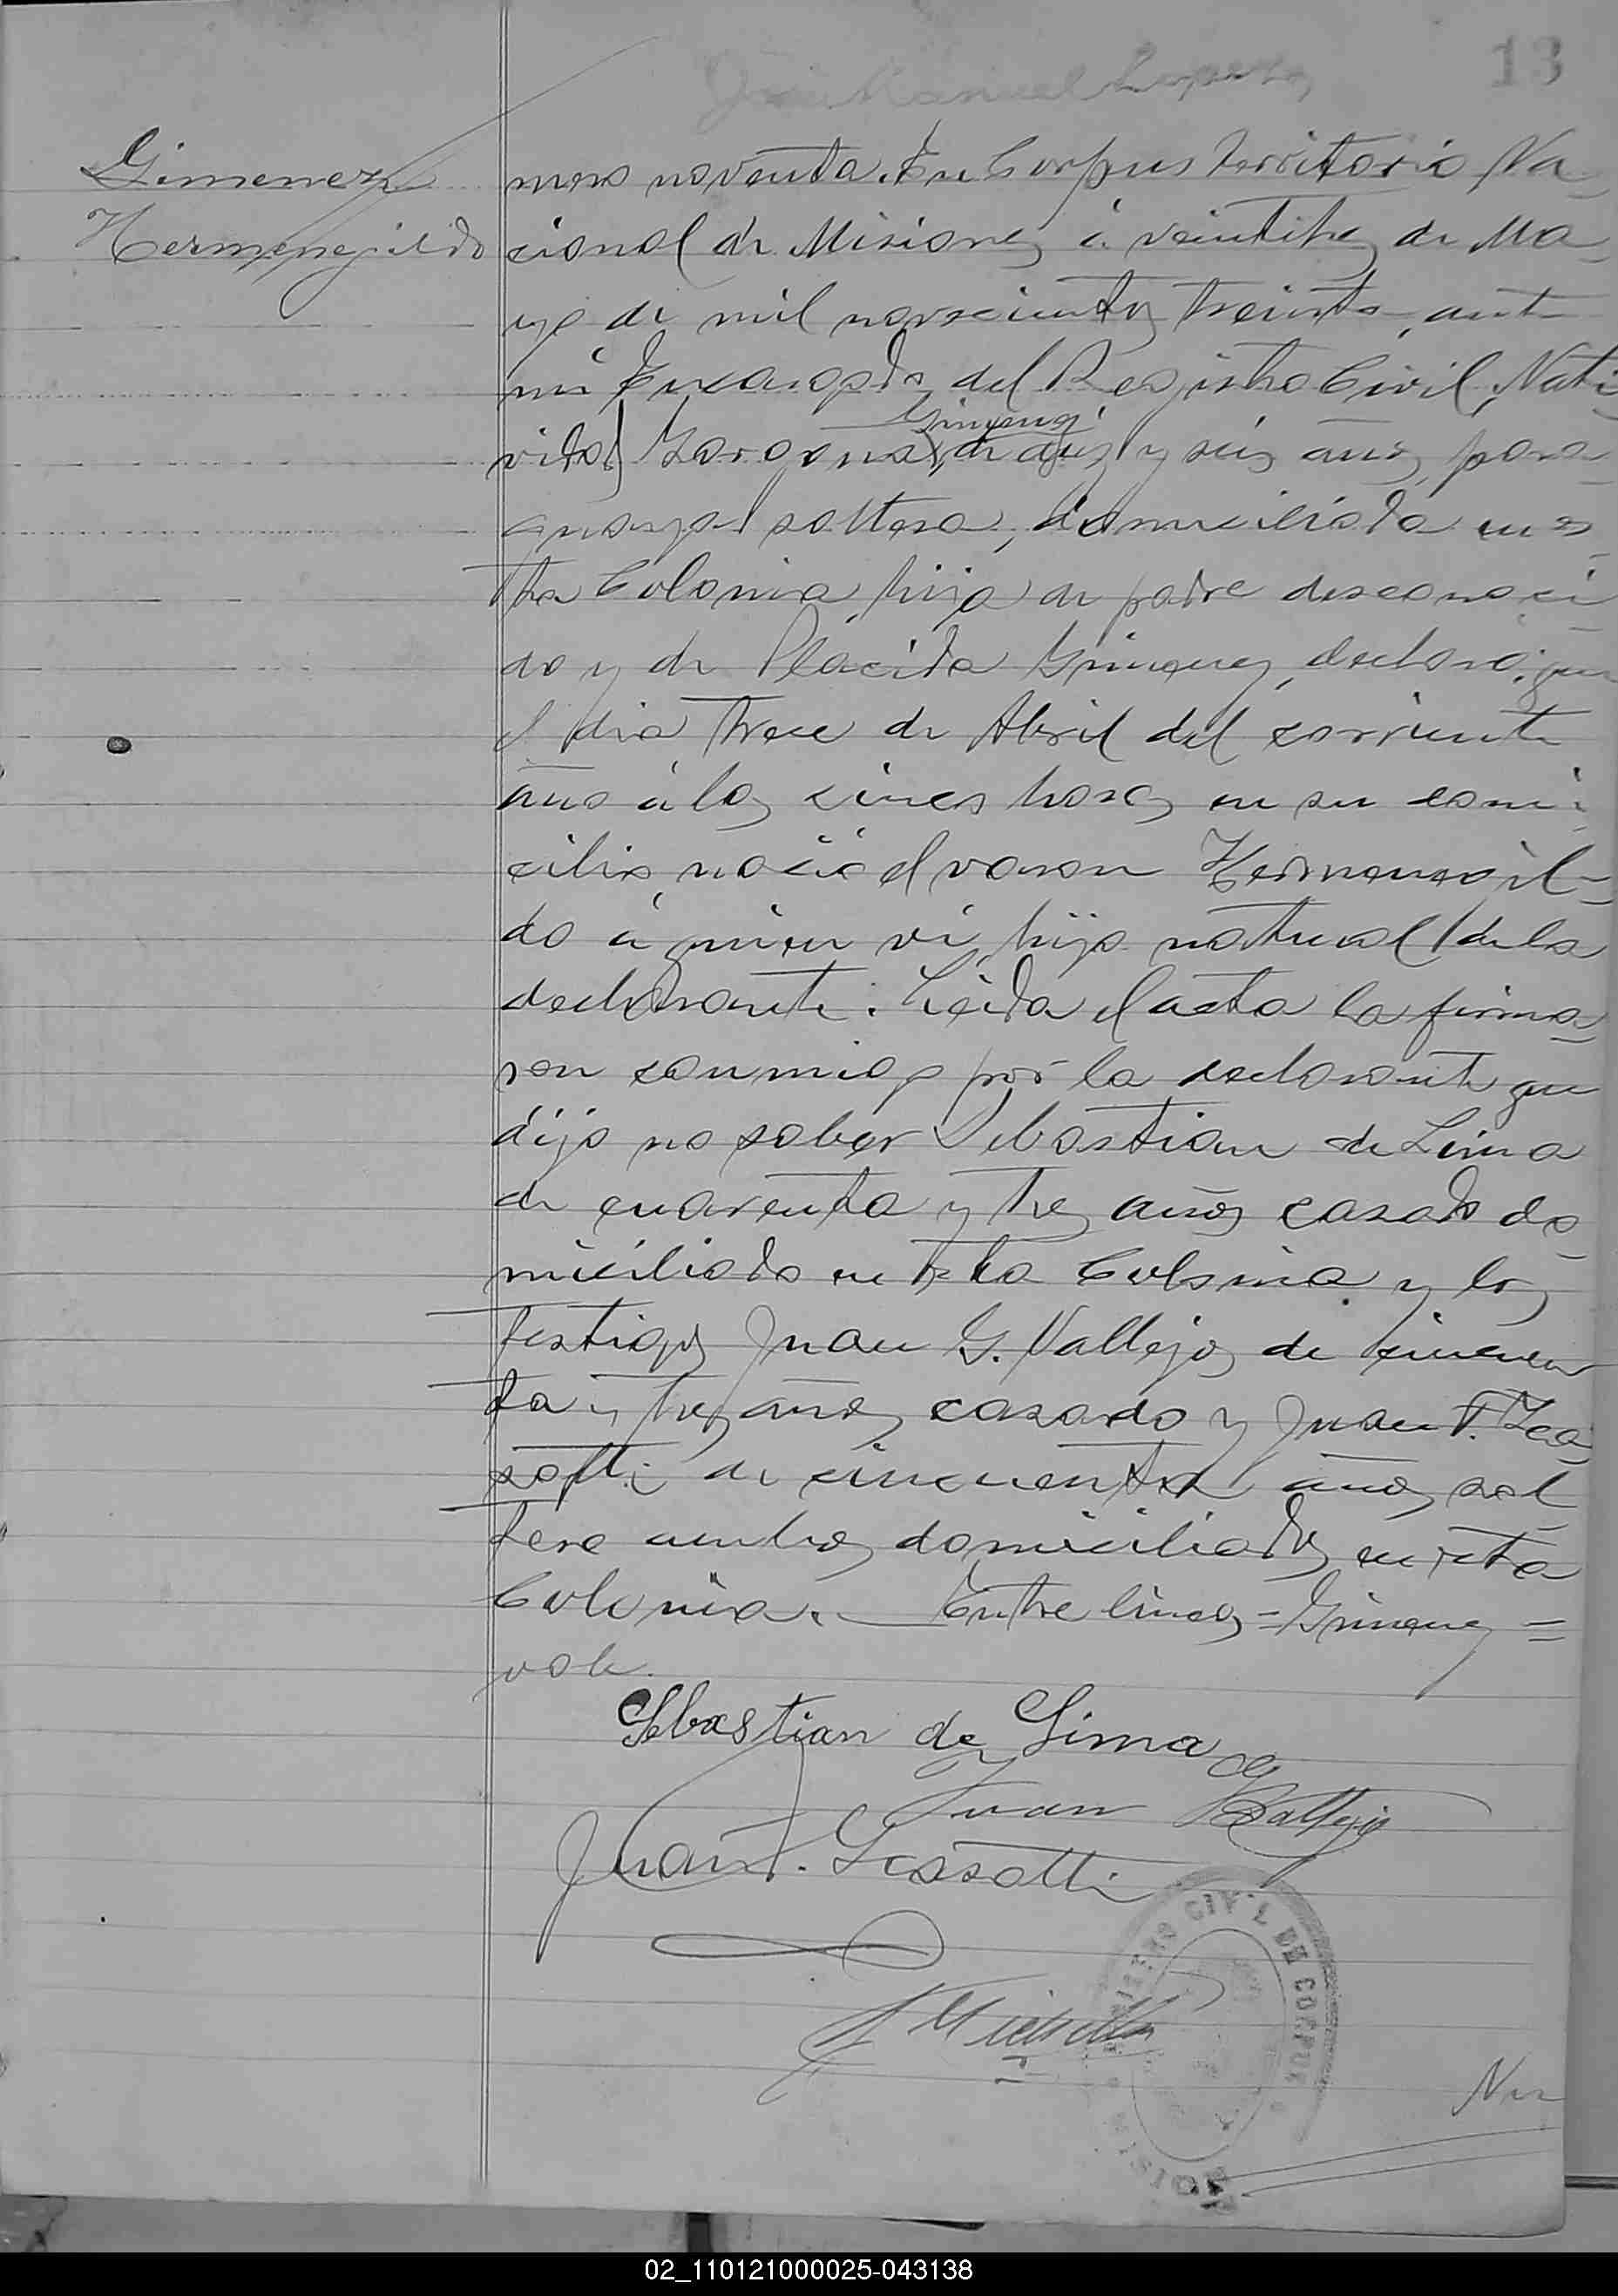 13
José Manuel Lopez
Gimenez
Hermenegildo
mero noventa. En Corpus Territorio Na-
cional de Misiones á veintitres de Ma-
yo de mil novecientos treinta, ante
mi Encargado del Registro Civil, Nati-
Gimenez
vidad de diez y seis años, para-
guaya soltera, domiciliada en es-
ta Colonia, hija de padre desconoci-
do y de Plácida Gimenez, declaró: que
el dia trece de Abril del corriente
año á las cinco horas en su domi-
cilio, nació el varon Hermenegil-
do á quien vi, hijo natural de la
declarante. Leida el acta la firma-
ron conmigo por la declarante que
dijo no saber Sebastian de Lima
de cuarenta y tres años casado do-
miciliado en esta Colonia y los
testigos Juan G. Vallejos de cincuen
ta y tres años, casado y Juan T. Les-
sotti de cincuenta años, sol-
tero ambos domiciliados en esta
Colonia. Entre lineas = Gimenez =
vale.
Sebastian de Lima
Juan G Vallejo
Juan T. Lessotti
REGISTRO CIVIL DE CORPUS
MISIONES
Nú
02_110121000025-043138